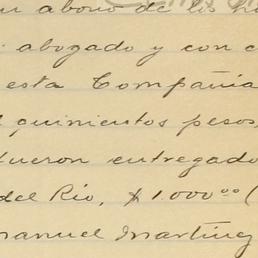 abono de los
abogado y con
esta Compañia
quinientos pesos,
fueron entregado
del Rio, $1.000ºº (
Manuel Martinez